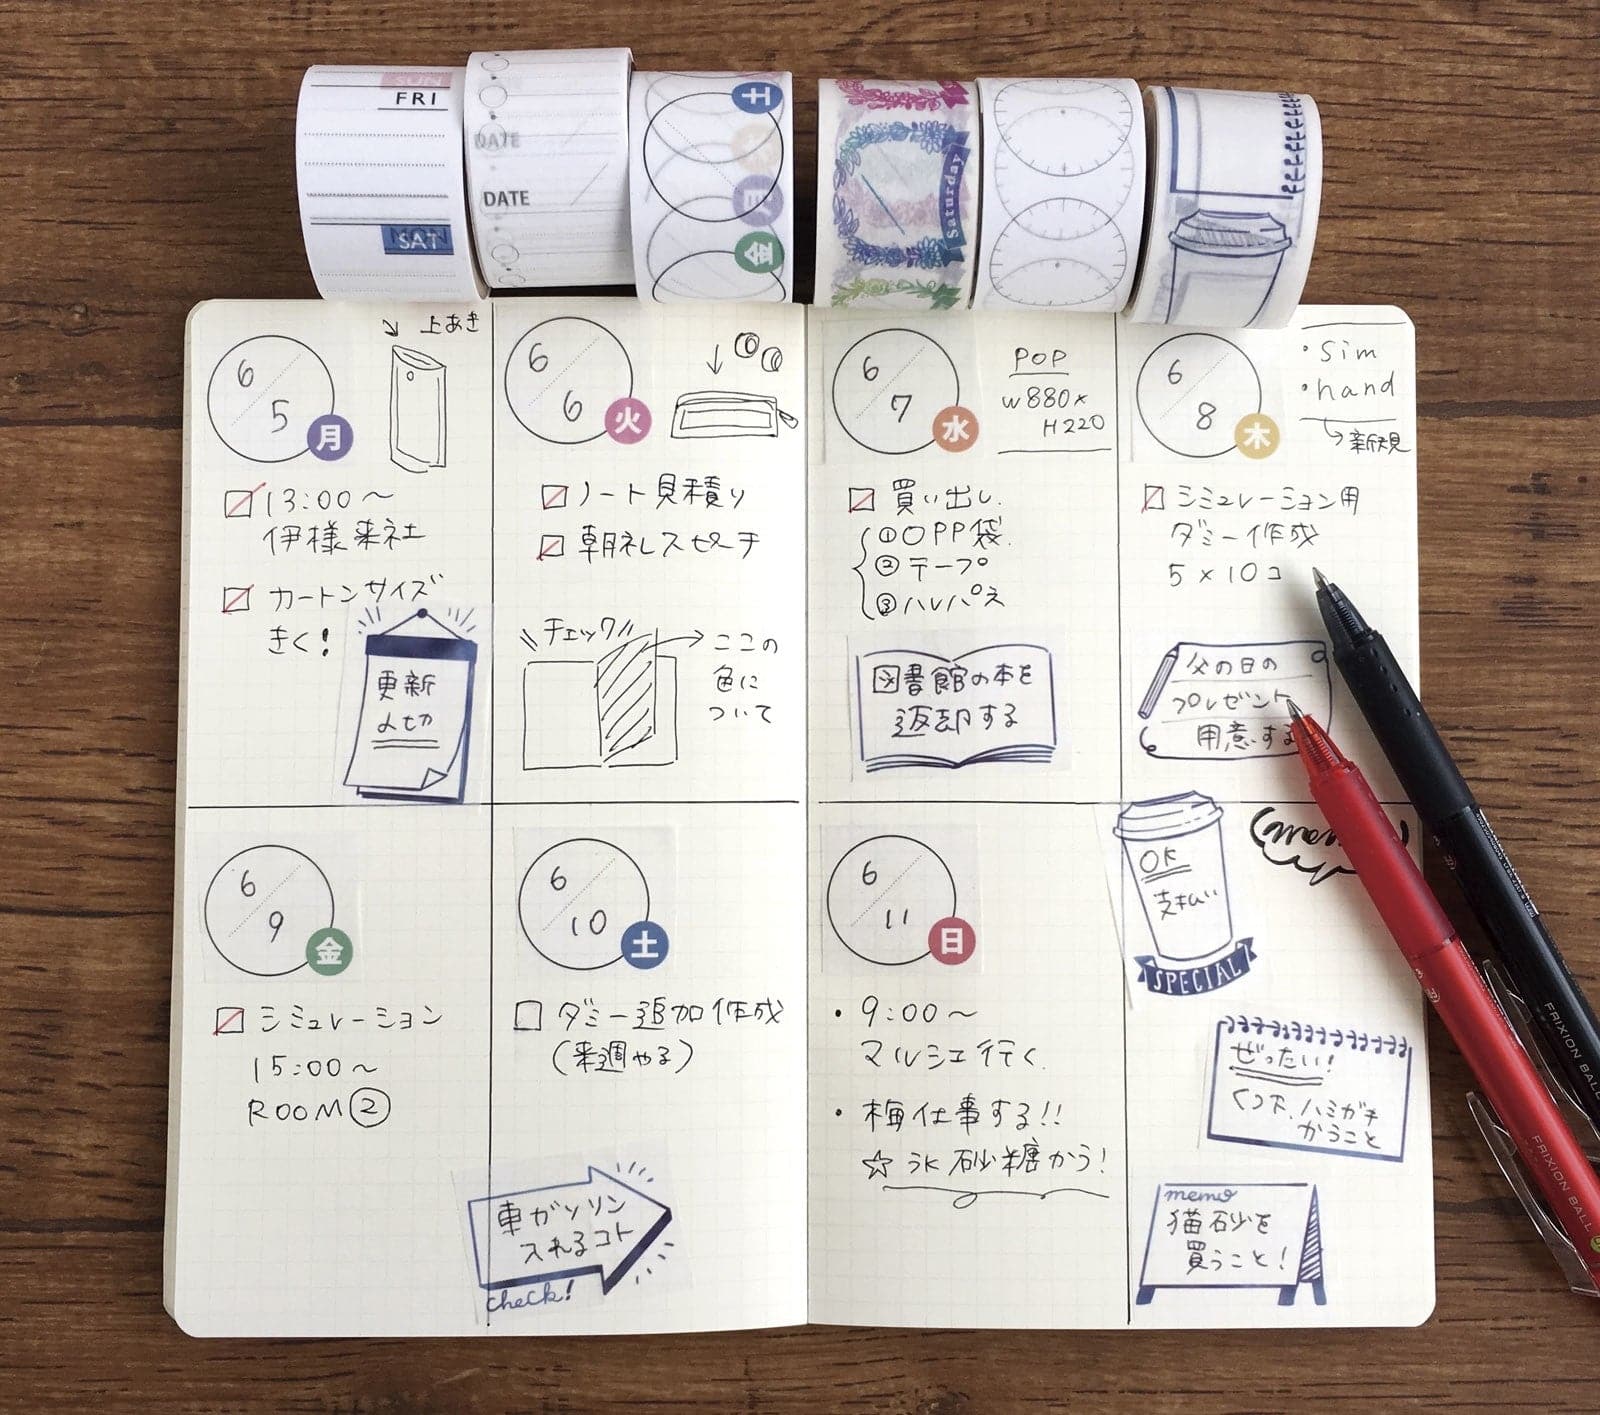 SUN
FRI
MON
SAT
DATE
DATE
土
日
金
Saturday
6/5
月
上あき
13:00〜
伊様来社
カートンサイズ
きく!
更新
〆切
6/6
火
ノート見積り
朝礼スピーチ
チェック
ここの
色に
ついて
6/7
水
POP
W880×
H220
買い出し
①OPP袋
②テープ
③ハレパネ
図書館の本を
返却する
6/8
木
・sim
・hand
新規
シミュレーション用
ダミー作成
5×10コ
父の日の
プレゼント
用意する
6/9
金
シミュレーション
15:00〜
ROOM②
6/10
土
ダミー追加作成
(来週やる)
車ガソリン
入れるコト
check!
6/11
日
・9:00〜
マルシェ行く
・梅仕事する!!
☆氷砂糖かう!
OK
支払い
SPECIAL
ぜったい!
くつ下、ハミガキ
かうこと
memo
猫砂を
買うこと!
FRIXION BALL
FRIXION BALL